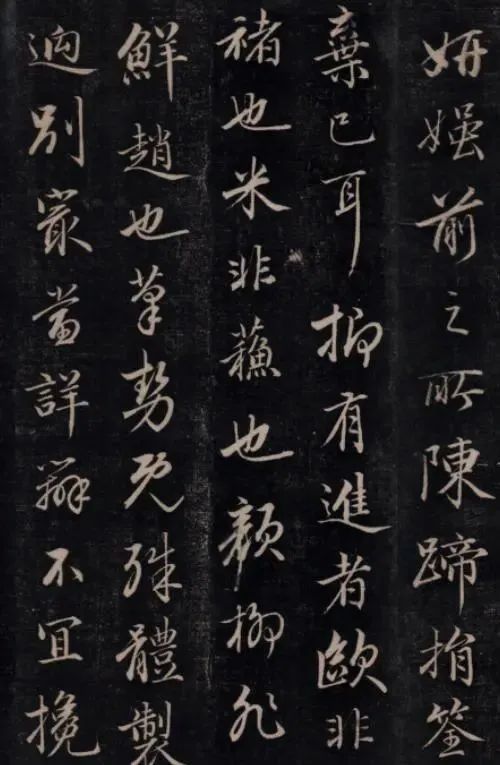 妍媸前之所陳蹄捐筌
棄已耳抑有進者歐非
褚也米非蘇也顏柳非
鮮趙也筆勢既殊體製
迥別最當詳辨不宜攙